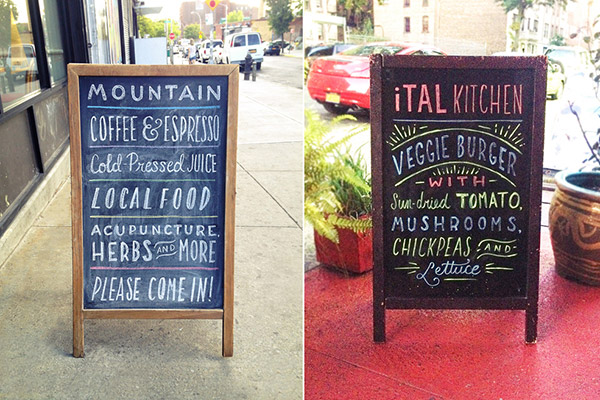 MOUNTAIN
COFFEE & ESPRESSO
Cold-Pressed JUICE
LOCAL FOOD
ACUPUNCTURE,
HERBS AND MORE
PLEASE COME IN!
iTAL KITCHEN
VEGGIE BURGER
WITH
Sun-dried TOMATO,
MUSHROOMS,
CHICKPEAS AND
Lettuce